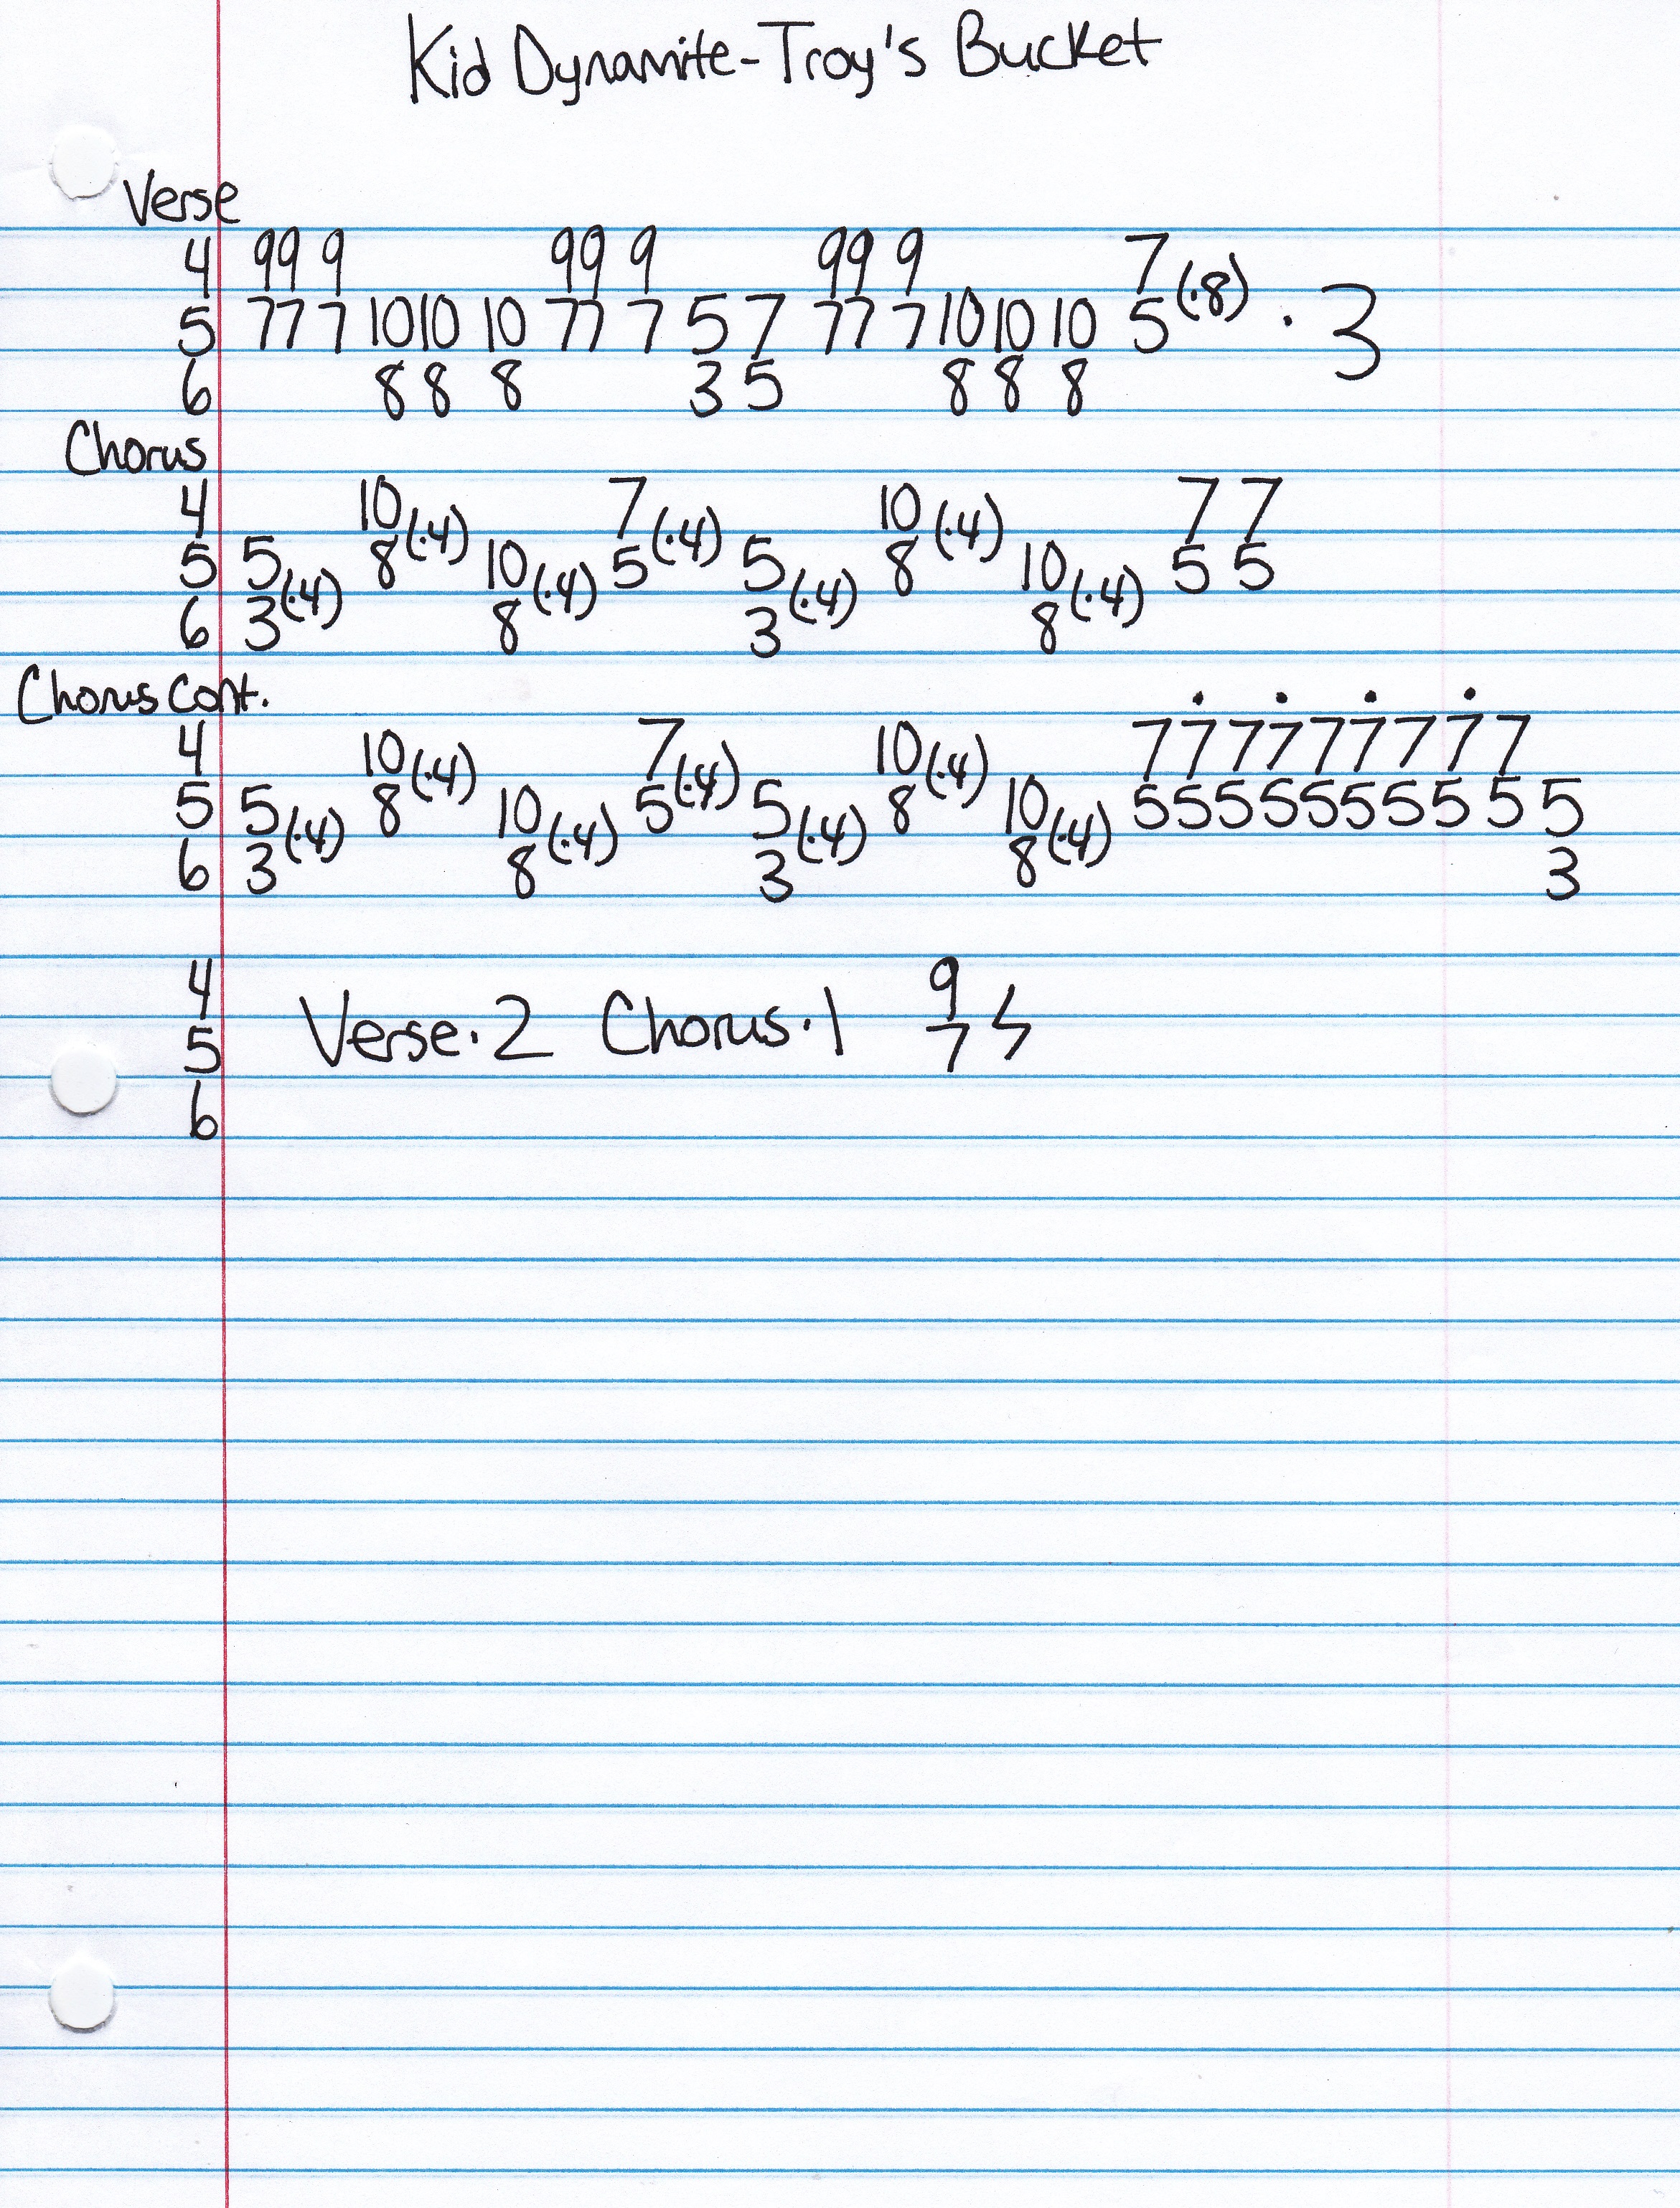 Kid Dynamite-Troy's Bucket
Verse
4 99 9 99 9 99 9 7
5 77 7 10 10 10 77 7 5 7 77 7 10 10 10 5 (·8) · 3
6 8 8 8 3 5 8 8 8
Chorus
4 10 7 10 7 7
5 5 8 (·4) 10 5 (·4) 5 8 (·4) 10 5 5
6 3 (·4) 8 (·4) 3 (·4) 8 (·4)
Chorus Cont.
4 10 7 10 7 7̇ 7 7̇ 7 7̇ 7 7̇ 7
5 5 8 (·4) 10 5 (·4) 5 8 (·4) 10 5 5 5 5 5 5 5 5 5 5
6 3 (·4) 8 (·4) 3 (·4) 8 (·4) 3
4 9
5 Verse·2 Chorus·1 7 ϟ
6